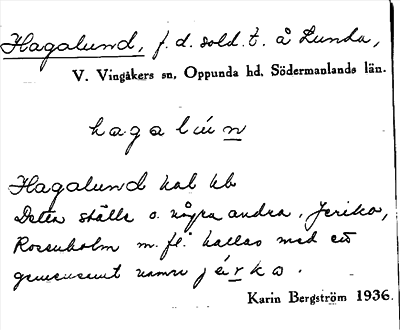 Hagalund, f. d. sold. t. å Lunda,
V. Vingåkers sn, Oppunda hd, Södermanlands län.
hagalún
Hagalund kal kb
Detta ställe o. några andra, Jeriko,
Rosenholm m. fl. kallas med ett
gemensamt namn járko.
Karin Bergström 1936.